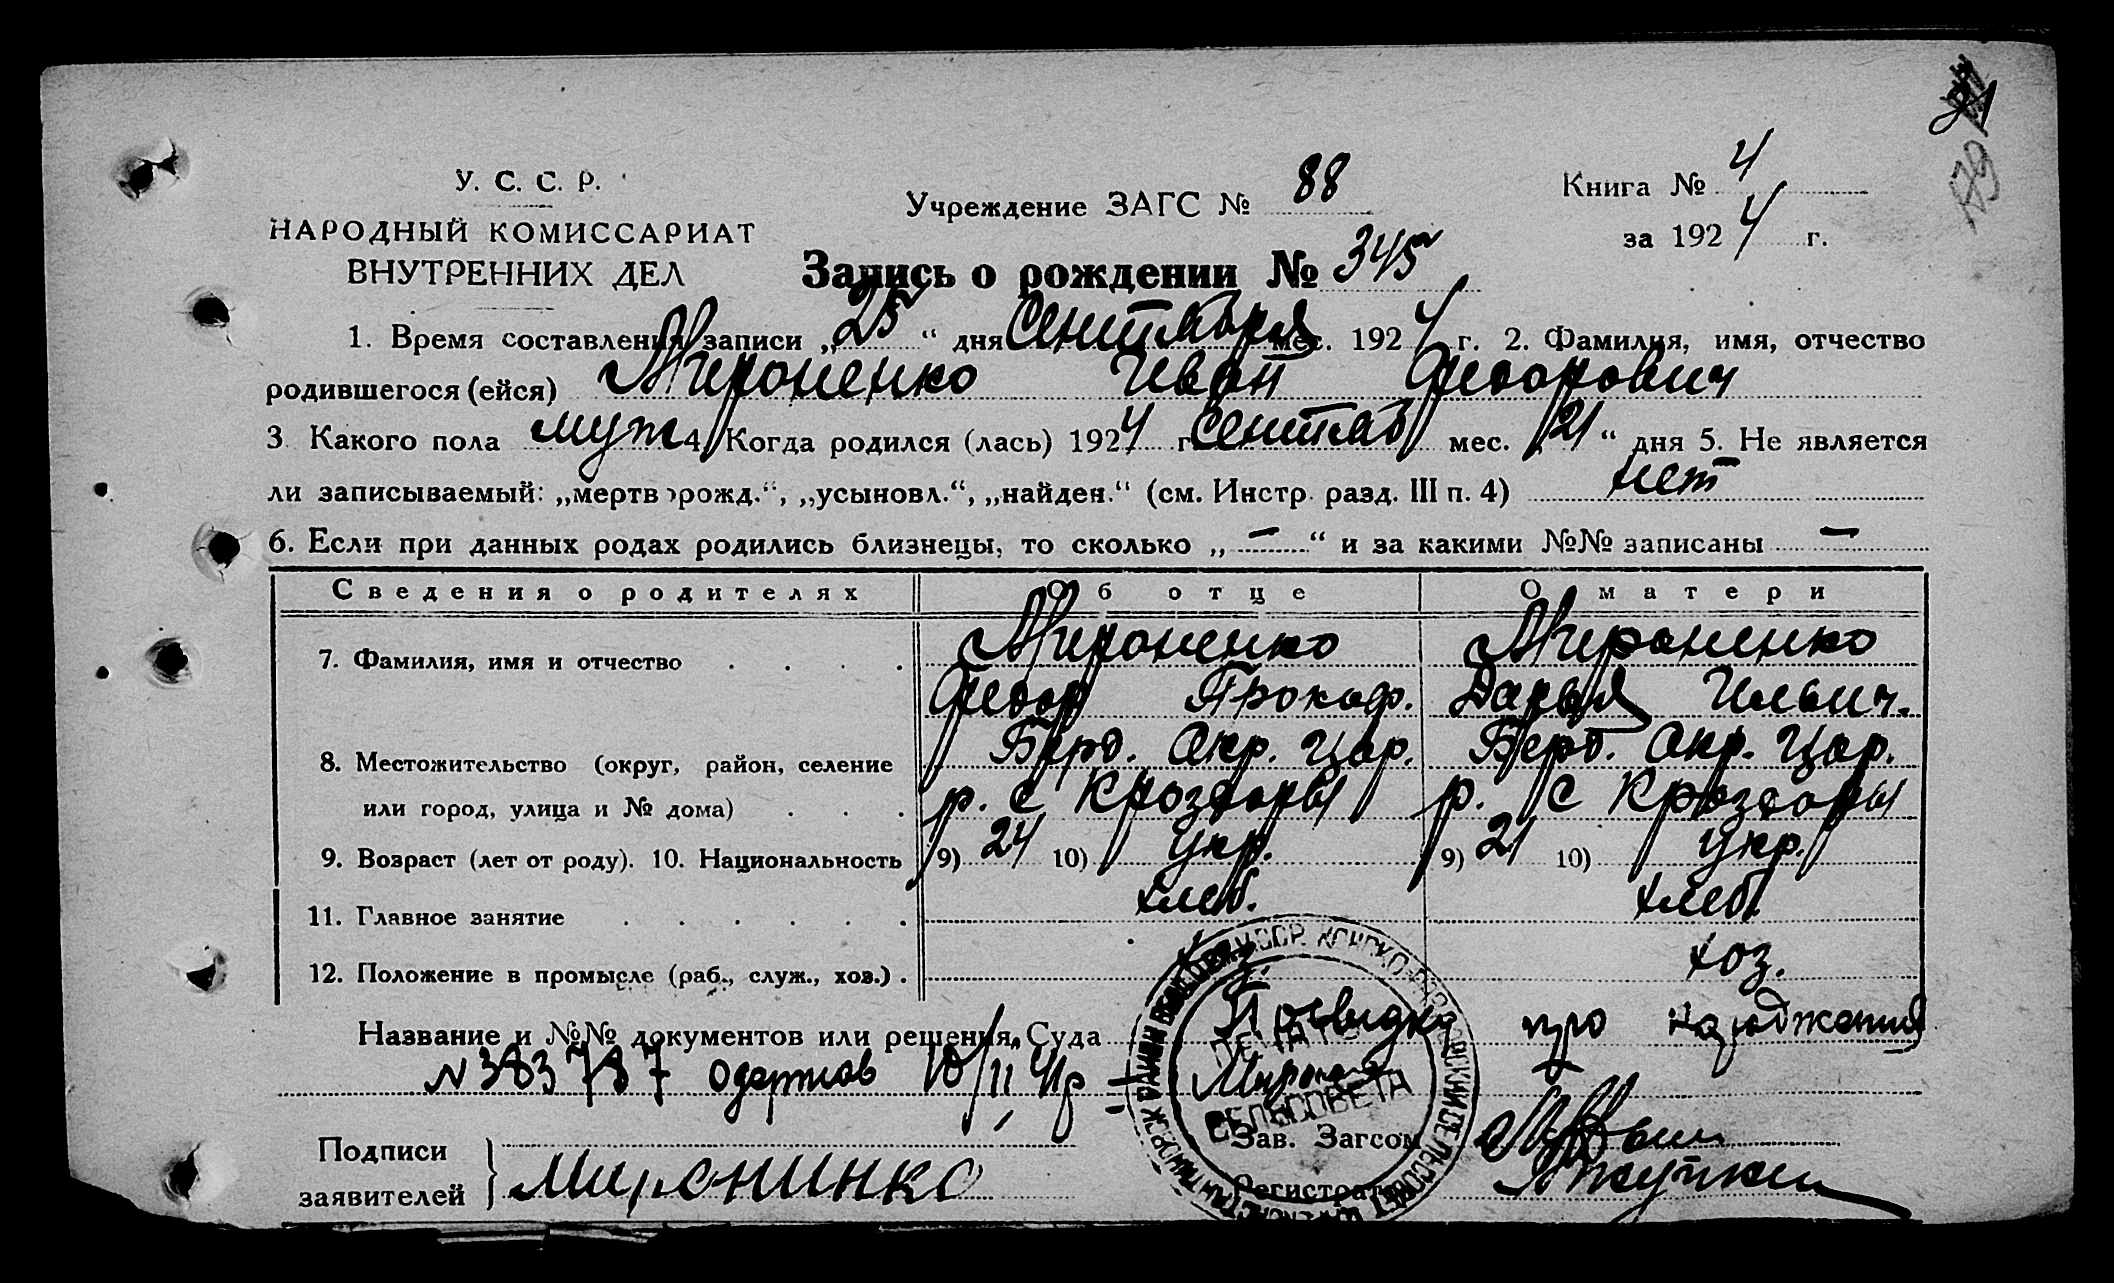 У. С. С. Р.
НАРОДНЫЙ КОМИССАРИАТ
ВНУТРЕННИХ ДЕЛ
Учреждение ЗАГС № 88
Книга № 4
за 1924 г.
Запись о рождении № 345
1. Время составления записи „25“ дня Сентября мес. 1924 г. 2. Фамилия, имя, отчество
родившегося (ейся) Мироненко Иван Федорович
3 Какого пола муж 4 Когда родился (лась) 1924 г Сентяб мес. „21“ дня 5. Не является
ли записываемый: „мертворожд.“, „усыновл.“, „найден.“ (см. Инстр. разд. III п. 4) нет
6. Если при данных родах родились близнецы, то сколько „—“ и за какими №№ записаны —
Сведения о родителях Об отце О матери
7. Фамилия, имя и отчество Мироненко Мироненко
Федор Прокоф. Дарья Ильич.
8. Местожительство (округ, район, селение Берд. Окр. Цар. Берд. Окр. Цар.
или город, улица и № дома) р. с р. с
9. Возраст (лет от роду). 10. Национальность 9) 24 10) Укр. 9) 21 10) Укр.
11. Главное занятие хлеб. хлеб.
12. Положение в промысле (раб., служ., хоз.) хоз. хоз.
Название и №№ документов или решения Суда Посвидка про народження
N 383787 одержав 18/II 41р
СЕЛЬСОВЕТА
Подписи
заявителей } Миронинко
Зав. Загсом
Регистратор